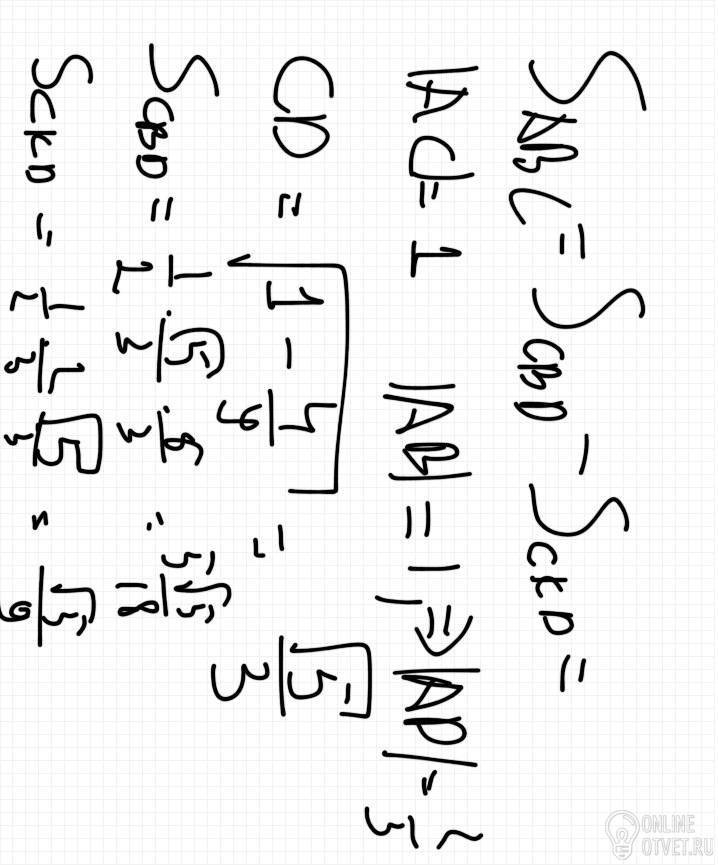 S_ABC = S_CBD − S_CKD =
|AC| = 1 |AB| = 1, ⇒ |AD| = 2/3
CD = √(1 − 4/9) = √5/3
S_CBD = 1/2 · √5/3 · 5/3 = 5√5/18
S_CKD = 1/2 · 2/3 √5/3 = √5/9
ONLINE
OTVET.RU